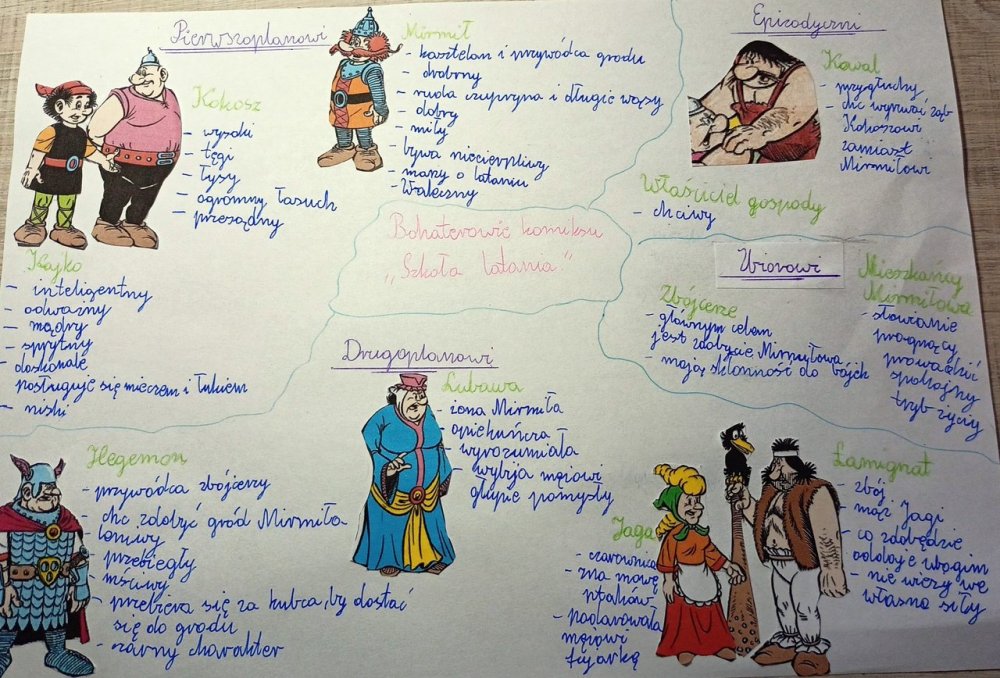 Pierwszoplanowi
Kokosz
- wysoki
- tęgi
- łysy
- ogromny łasuch
- przesądny
Kajko
- inteligentny
- odważny
- mądry
- sprytny
- doskonale
posługuje się mieczem i łukiem
- niski
Mirmił
- kasztelan i przywódca grodu
- drobny
- ruda czupryna i długie wąsy
- dobry
- miły
- bywa niecierpliwy
- marzy o lataniu
- Waleczny
Bohaterowie komiksu
„Szkoła latania."
Epizodyczni
Kowal
- przygłuchy
- chc wyrwać ząb
Kokoszowi
zamiast
Mirmiłowi
Właściciel gospody
- chciwy
Zbiorowi
Zbójcerze
- głównym celem
jest zdobycie Mirmiłowa
- mają skłonność do bójek
Mieszkańcy
Mirmiłowa
- słowianie
pragnący
prowadzić
spokojny
tryb życiy
Drugoplanowi
Hegemon
- przywódca zbójcerzy
- chc zdobyć gród Mirmiła
- leniwy
- przebiegły
- mściwy
- przebiera się za kupca, by dostać
się do grodu
- czarny charakter
Lubawa
- żona Mirmiła
- opiekuńcza
- wyrozumiała
- wybija mężowi
głupie pomysły
Jaga
- czarownica
- zna mowę
ptaków
- podarowała
mężowi
fujarkę
Łamignat
- zbój
- mąż Jagi
- co zdobędzie
oddaje ubogim
- nie wierzy we
własne siły